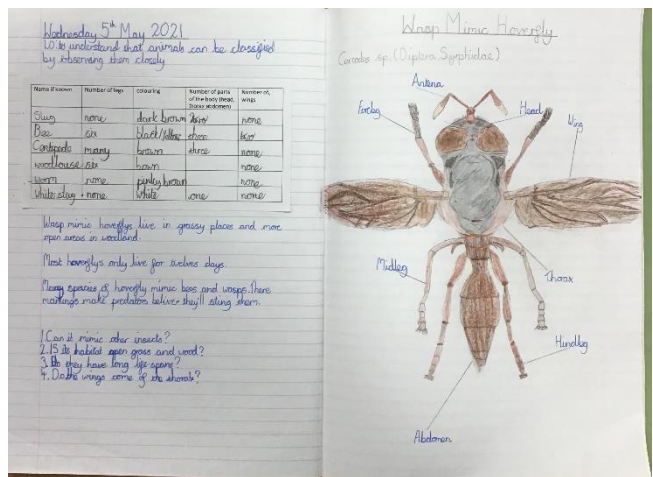 Wednesday 5th May 2021
LO: to understand that animals can be classified
by observing them closely
Name if known Number of legs colouring Number of parts of the body (head, thorax abdomen) Number of wings
Slug none dark brown two none
Bee six black/yellow three two
Centipede many brown three none
woodlouse six brown none
Worm none pinky brown none
white slug none white one none
Wasp mimic hoverflys live in grassy places and more
open areas in woodland.
Most hoverflys only live for twelves days.
Many species of hoverfly mimic bees and wasps. There
markings make predators beliver they'll sting them.
1. Can it mimic other insects?
2. IS its habitat open grass and wood?
3. Do they have long life spans?
4. Do the wings come of the thorax?
Wasp Mimic Hoverfly
sp. (Diptera Syrphidae)
Antena
Foreleg
Head
Wing
Midleg
Thorax
Hindleg
Abdomen